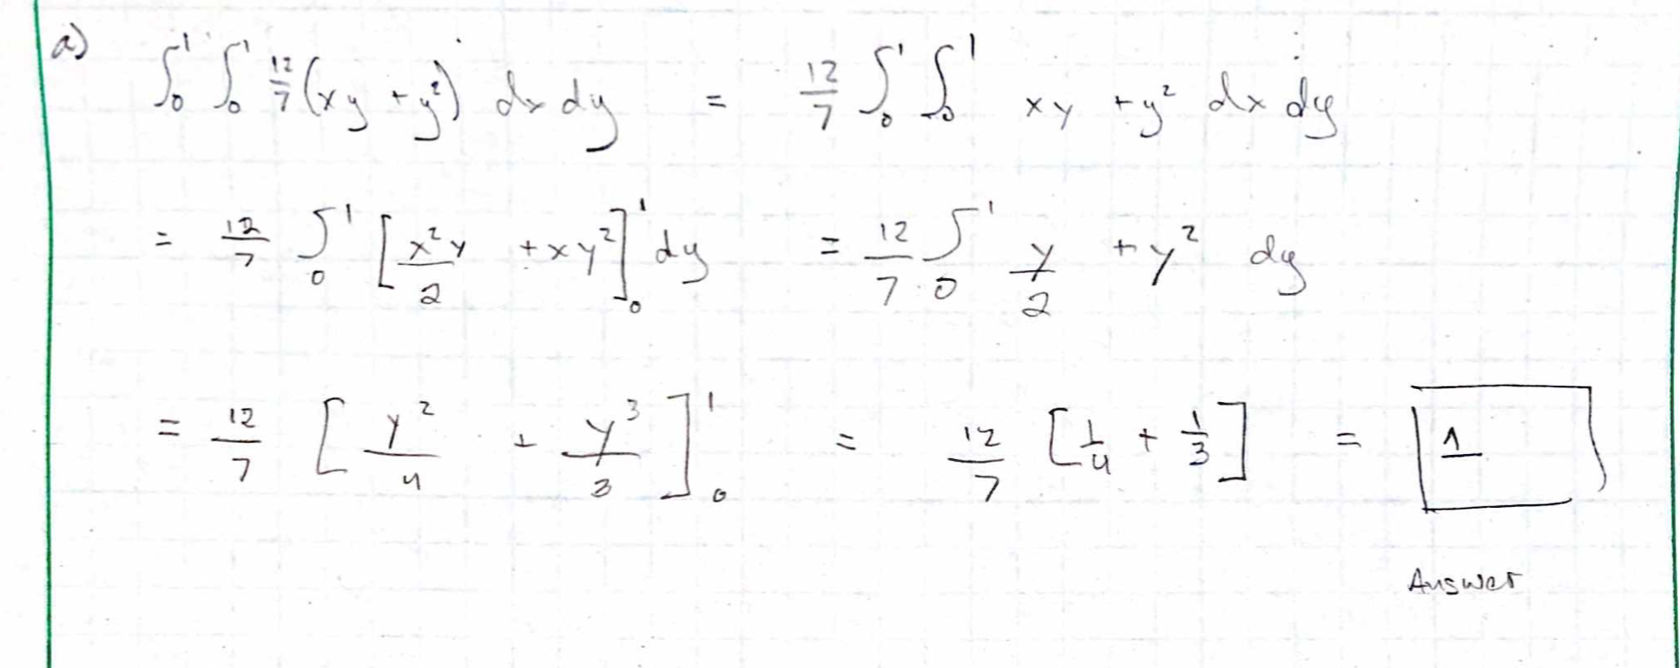 a) ∫₀¹ ∫₀¹ 12/7 (xy + y²) dx dy = 12/7 ∫₀¹ ∫₀¹ xy + y² dx dy
= 12/7 ∫₀¹ [x²y/2 + xy²]₀¹ dy = 12/7 ∫₀¹ y/2 + y² dy
= 12/7 [y²/4 + y³/3]₀¹ = 12/7 [1/4 + 1/3] = 1
Answer